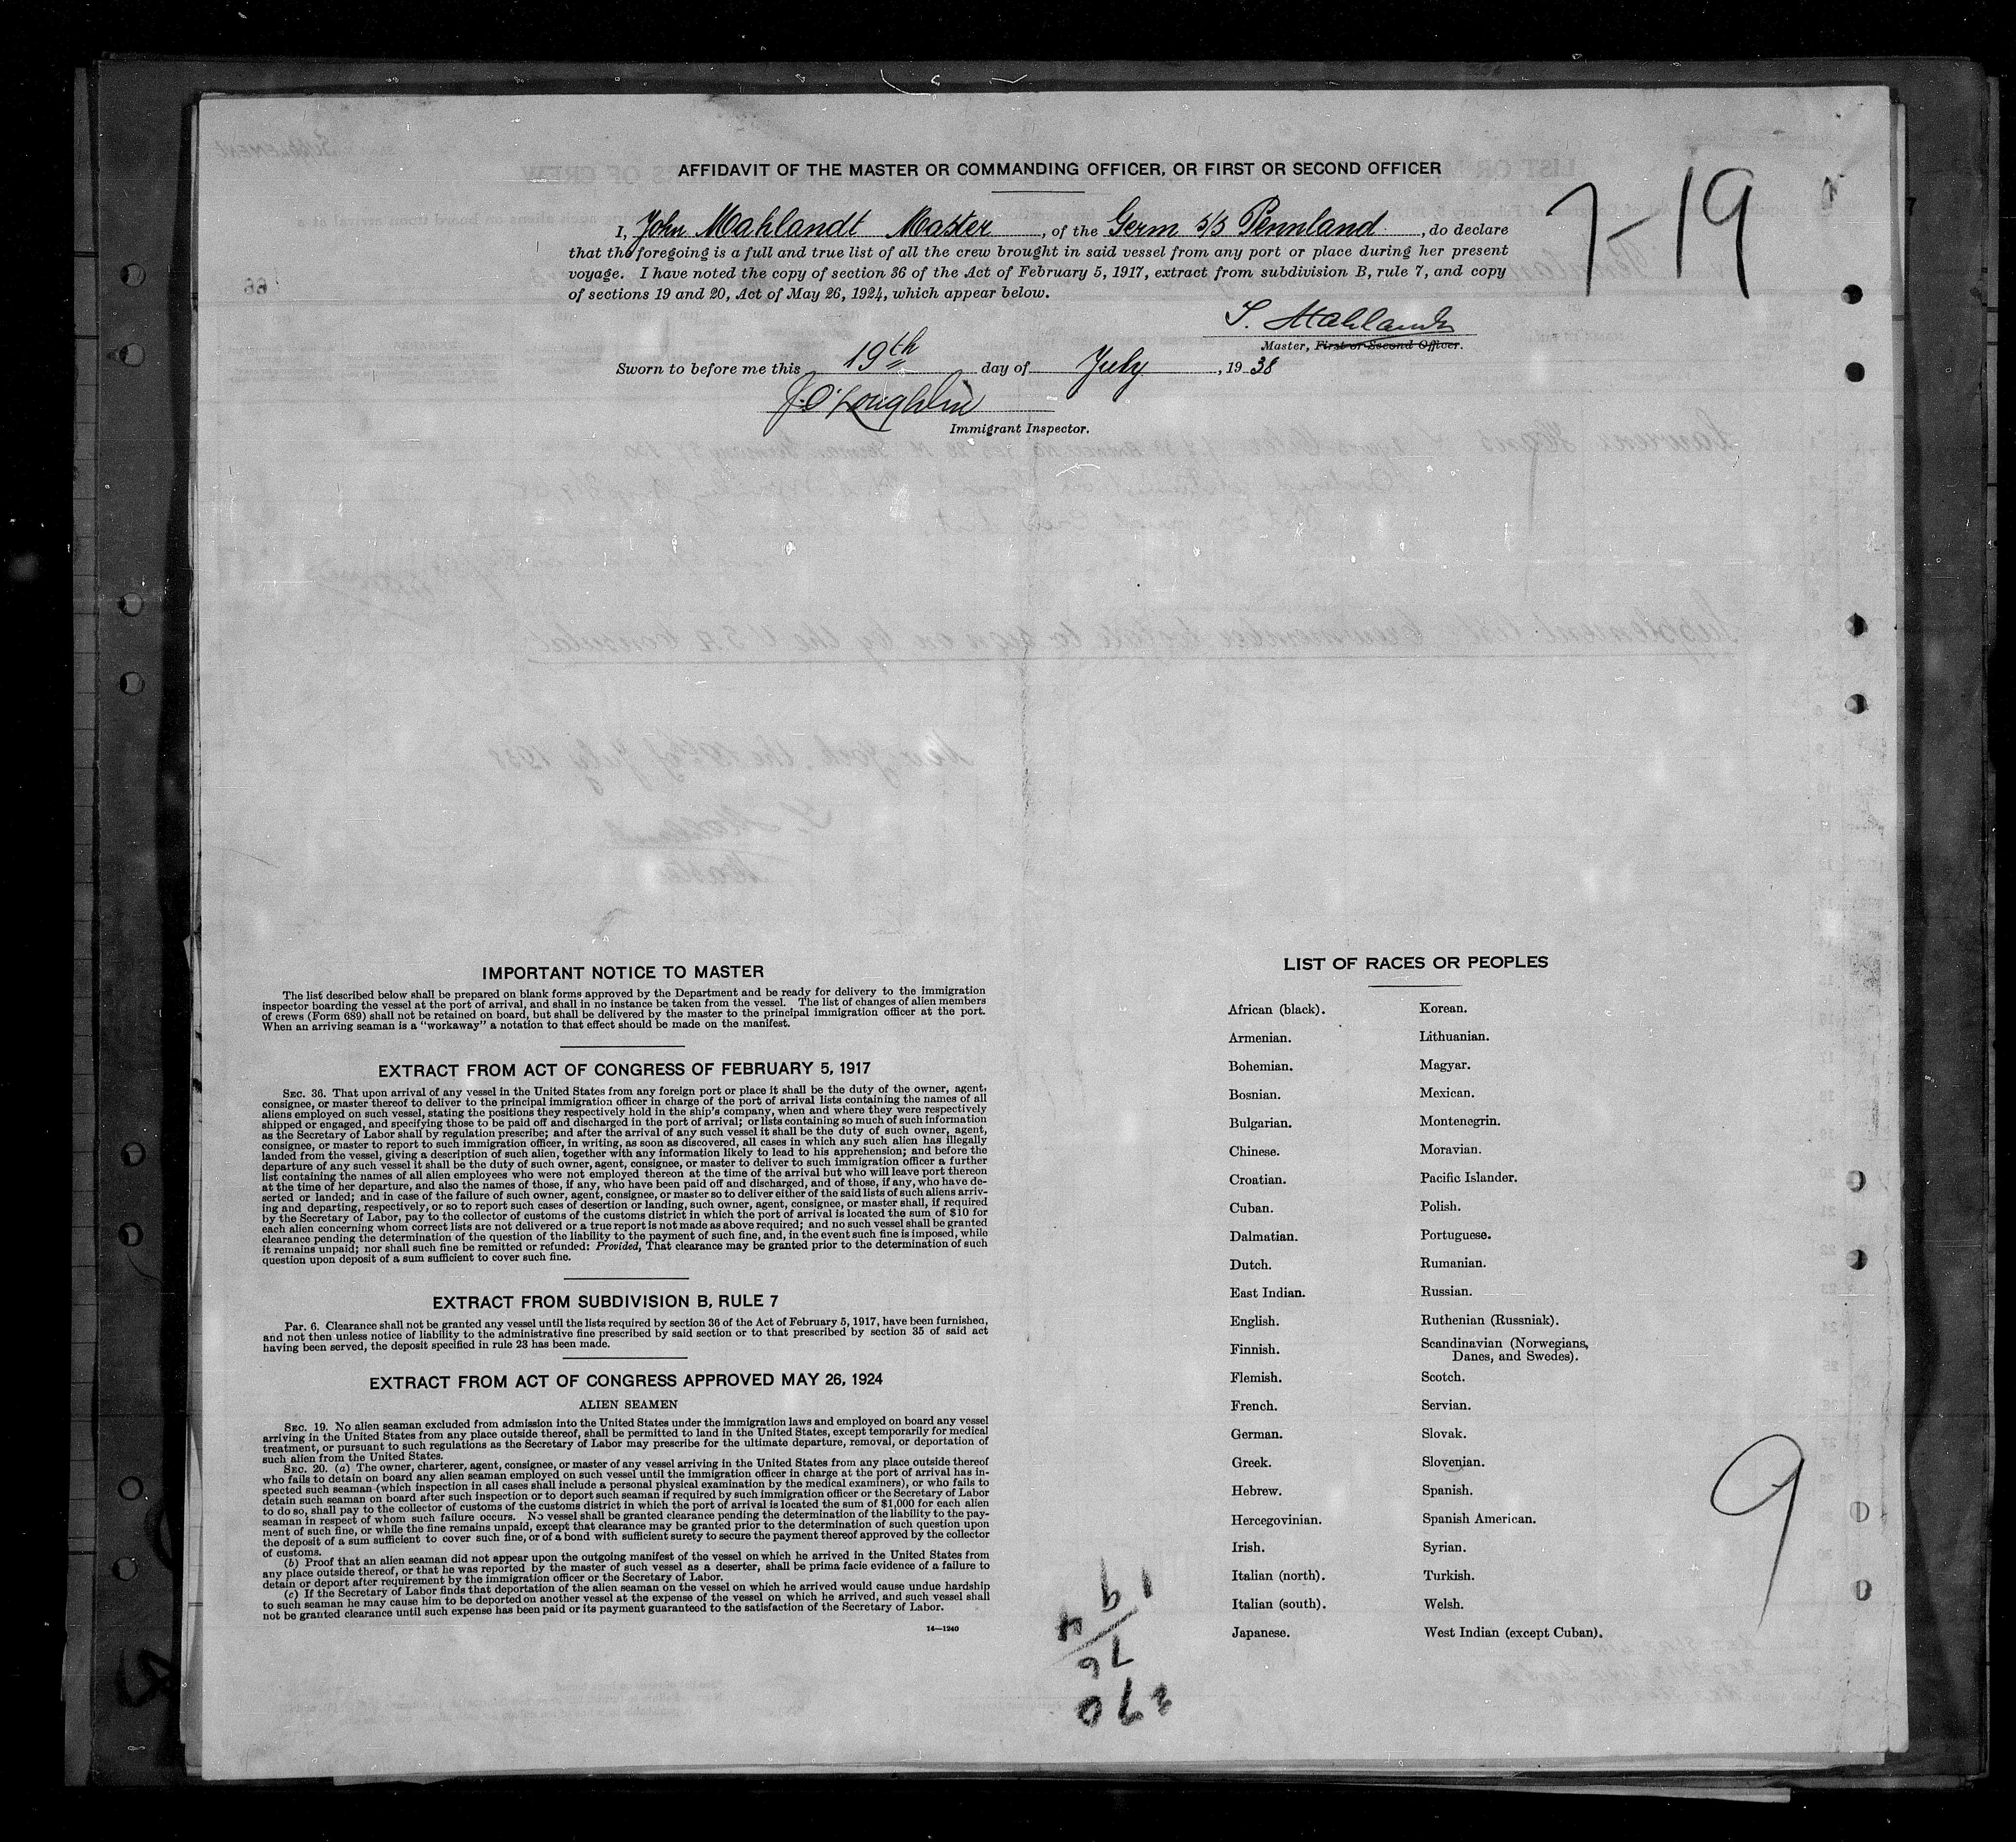 AFFIDAVIT OF THE MASTER OR COMMANDING OFFICER, OR FIRST OR SECOND OFFICER
7-19
I, John Mahlandt Master, of the Germ S/S Pennland, do declare
that the foregoing is a full and true list of all the crew brought in said vessel from any port or place during her present
voyage. I have noted the copy of section 36 of the Act of February 5, 1917, extract from subdivision B, rule 7, and copy
of sections 19 and 20, Act of May 26, 1924, which appear below.
J. Mahlandt
Master, First or Second Officer.
Sworn to before me this 19th day of July, 1938
J. O'Loughlin
Immigrant Inspector.
IMPORTANT NOTICE TO MASTER
The list described below shall be prepared on blank forms approved by the Department and be ready for delivery to the immigration
inspector boarding the vessel at the port of arrival, and shall in no instance be taken from the vessel. The list of changes of alien members
of crews (Form 689) shall not be retained on board, but shall be delivered by the master to the principal immigration officer at the port.
When an arriving seaman is a "workaway" a notation to that effect should be made on the manifest.
EXTRACT FROM ACT OF CONGRESS OF FEBRUARY 5, 1917
SEC. 36. That upon arrival of any vessel in the United States from any foreign port or place it shall be the duty of the owner, agent,
consignee, or master thereof to deliver to the principal immigration officer in charge of the port of arrival lists containing the names of all
aliens employed on such vessel, stating the positions they respectively hold in the ship's company, when and where they were respectively
shipped or engaged, and specifying those to be paid off and discharged in the port of arrival; or lists containing so much of such information
as the Secretary of Labor shall by regulation prescribe; and after the arrival of any such vessel it shall be the duty of such owner, agent,
consignee, or master to report to such immigration officer, in writing, as soon as discovered, all cases in which any such alien has illegally
landed from the vessel, giving a description of such alien, together with any information likely to lead to his apprehension; and before the
departure of any such vessel it shall be the duty of such owner, agent, consignee, or master to deliver to such immigration officer a further
list containing the names of all alien employees who were not employed thereon at the time of the arrival but who will leave port thereon
at the time of her departure, and also the names of those, if any, who have been paid off and discharged, and of those, if any, who have de-
serted or landed; and in case of the failure of such owner, agent, consignee, or master so to deliver either of the said lists of such aliens arriv-
ing and departing, respectively, or so to report such cases of desertion or landing, such owner, agent, consignee, or master shall, if required
by the Secretary of Labor, pay to the collector of customs of the customs district in which the port of arrival is located the sum of $10 for
each alien concerning whom correct lists are not delivered or a true report is not made as above required; and no such vessel shall be granted
clearance pending the determination of the question of the liability to the payment of such fine, and, in the event such fine is imposed, while
it remains unpaid; nor shall such fine be remitted or refunded: Provided, That clearance may be granted prior to the determination of such
question upon deposit of a sum sufficient to cover such fine.
EXTRACT FROM SUBDIVISION B, RULE 7
Par. 6. Clearance shall not be granted any vessel until the lists required by section 36 of the Act of February 5, 1917, have been furnished,
and not then unless notice of liability to the administrative fine prescribed by said section or to that prescribed by section 35 of said act
having been served, the deposit specified in rule 23 has been made.
EXTRACT FROM ACT OF CONGRESS APPROVED MAY 26, 1924
ALIEN SEAMEN
SEC. 19. No alien seaman excluded from admission into the United States under the immigration laws and employed on board any vessel
arriving in the United States from any place outside thereof, shall be permitted to land in the United States, except temporarily for medical
treatment, or pursuant to such regulations as the Secretary of Labor may prescribe for the ultimate departure, removal, or deportation of
such alien from the United States.
SEC. 20. (a) The owner, charterer, agent, consignee, or master of any vessel arriving in the United States from any place outside thereof
who fails to detain on board any alien seaman employed on such vessel until the immigration officer in charge at the port of arrival has in-
spected such seaman (which inspection in all cases shall include a personal physical examination by the medical examiners), or who fails to
detain such seaman on board after such inspection or to deport such seaman if required by such immigration officer or the Secretary of Labor
to do so, shall pay to the collector of customs of the customs district in which the port of arrival is located the sum of $1,000 for each alien
seaman in respect of whom such failure occurs. No vessel shall be granted clearance pending the determination of the liability to the pay-
ment of such fine, or while the fine remains unpaid, except that clearance may be granted prior to the determination of such question upon
the deposit of a sum sufficient to cover such fine, or of a bond with sufficient surety to secure the payment thereof approved by the collector
of customs.
(b) Proof that an alien seaman did not appear upon the outgoing manifest of the vessel on which he arrived in the United States from
any place outside thereof, or that he was reported by the master of such vessel as a deserter, shall be prima facie evidence of a failure to
detain or deport after requirement by the immigration officer or the Secretary of Labor.
(c) If the Secretary of Labor finds that deportation of the alien seaman on the vessel on which he arrived would cause undue hardship
to such seaman he may cause him to be deported on another vessel at the expense of the vessel on which he arrived, and such vessel shall
not be granted clearance until such expense has been paid or its payment guaranteed to the satisfaction of the Secretary of Labor.
14—1240
LIST OF RACES OR PEOPLES
African (black).
Armenian.
Bohemian.
Bosnian.
Bulgarian.
Chinese.
Croatian.
Cuban.
Dalmatian.
Dutch.
East Indian.
English.
Finnish.
Flemish.
French.
German.
Greek.
Hebrew.
Hercegovinian.
Irish.
Italian (north).
Italian (south).
Japanese.
Korean.
Lithuanian.
Magyar.
Mexican.
Montenegrin.
Moravian.
Pacific Islander.
Polish.
Portuguese.
Rumanian.
Russian.
Ruthenian (Russniak).
Scandinavian (Norwegians,
Danes, and Swedes).
Scotch.
Servian.
Slovak.
Slovenian.
Spanish.
Spanish American.
Syrian.
Turkish.
Welsh.
West Indian (except Cuban).
9